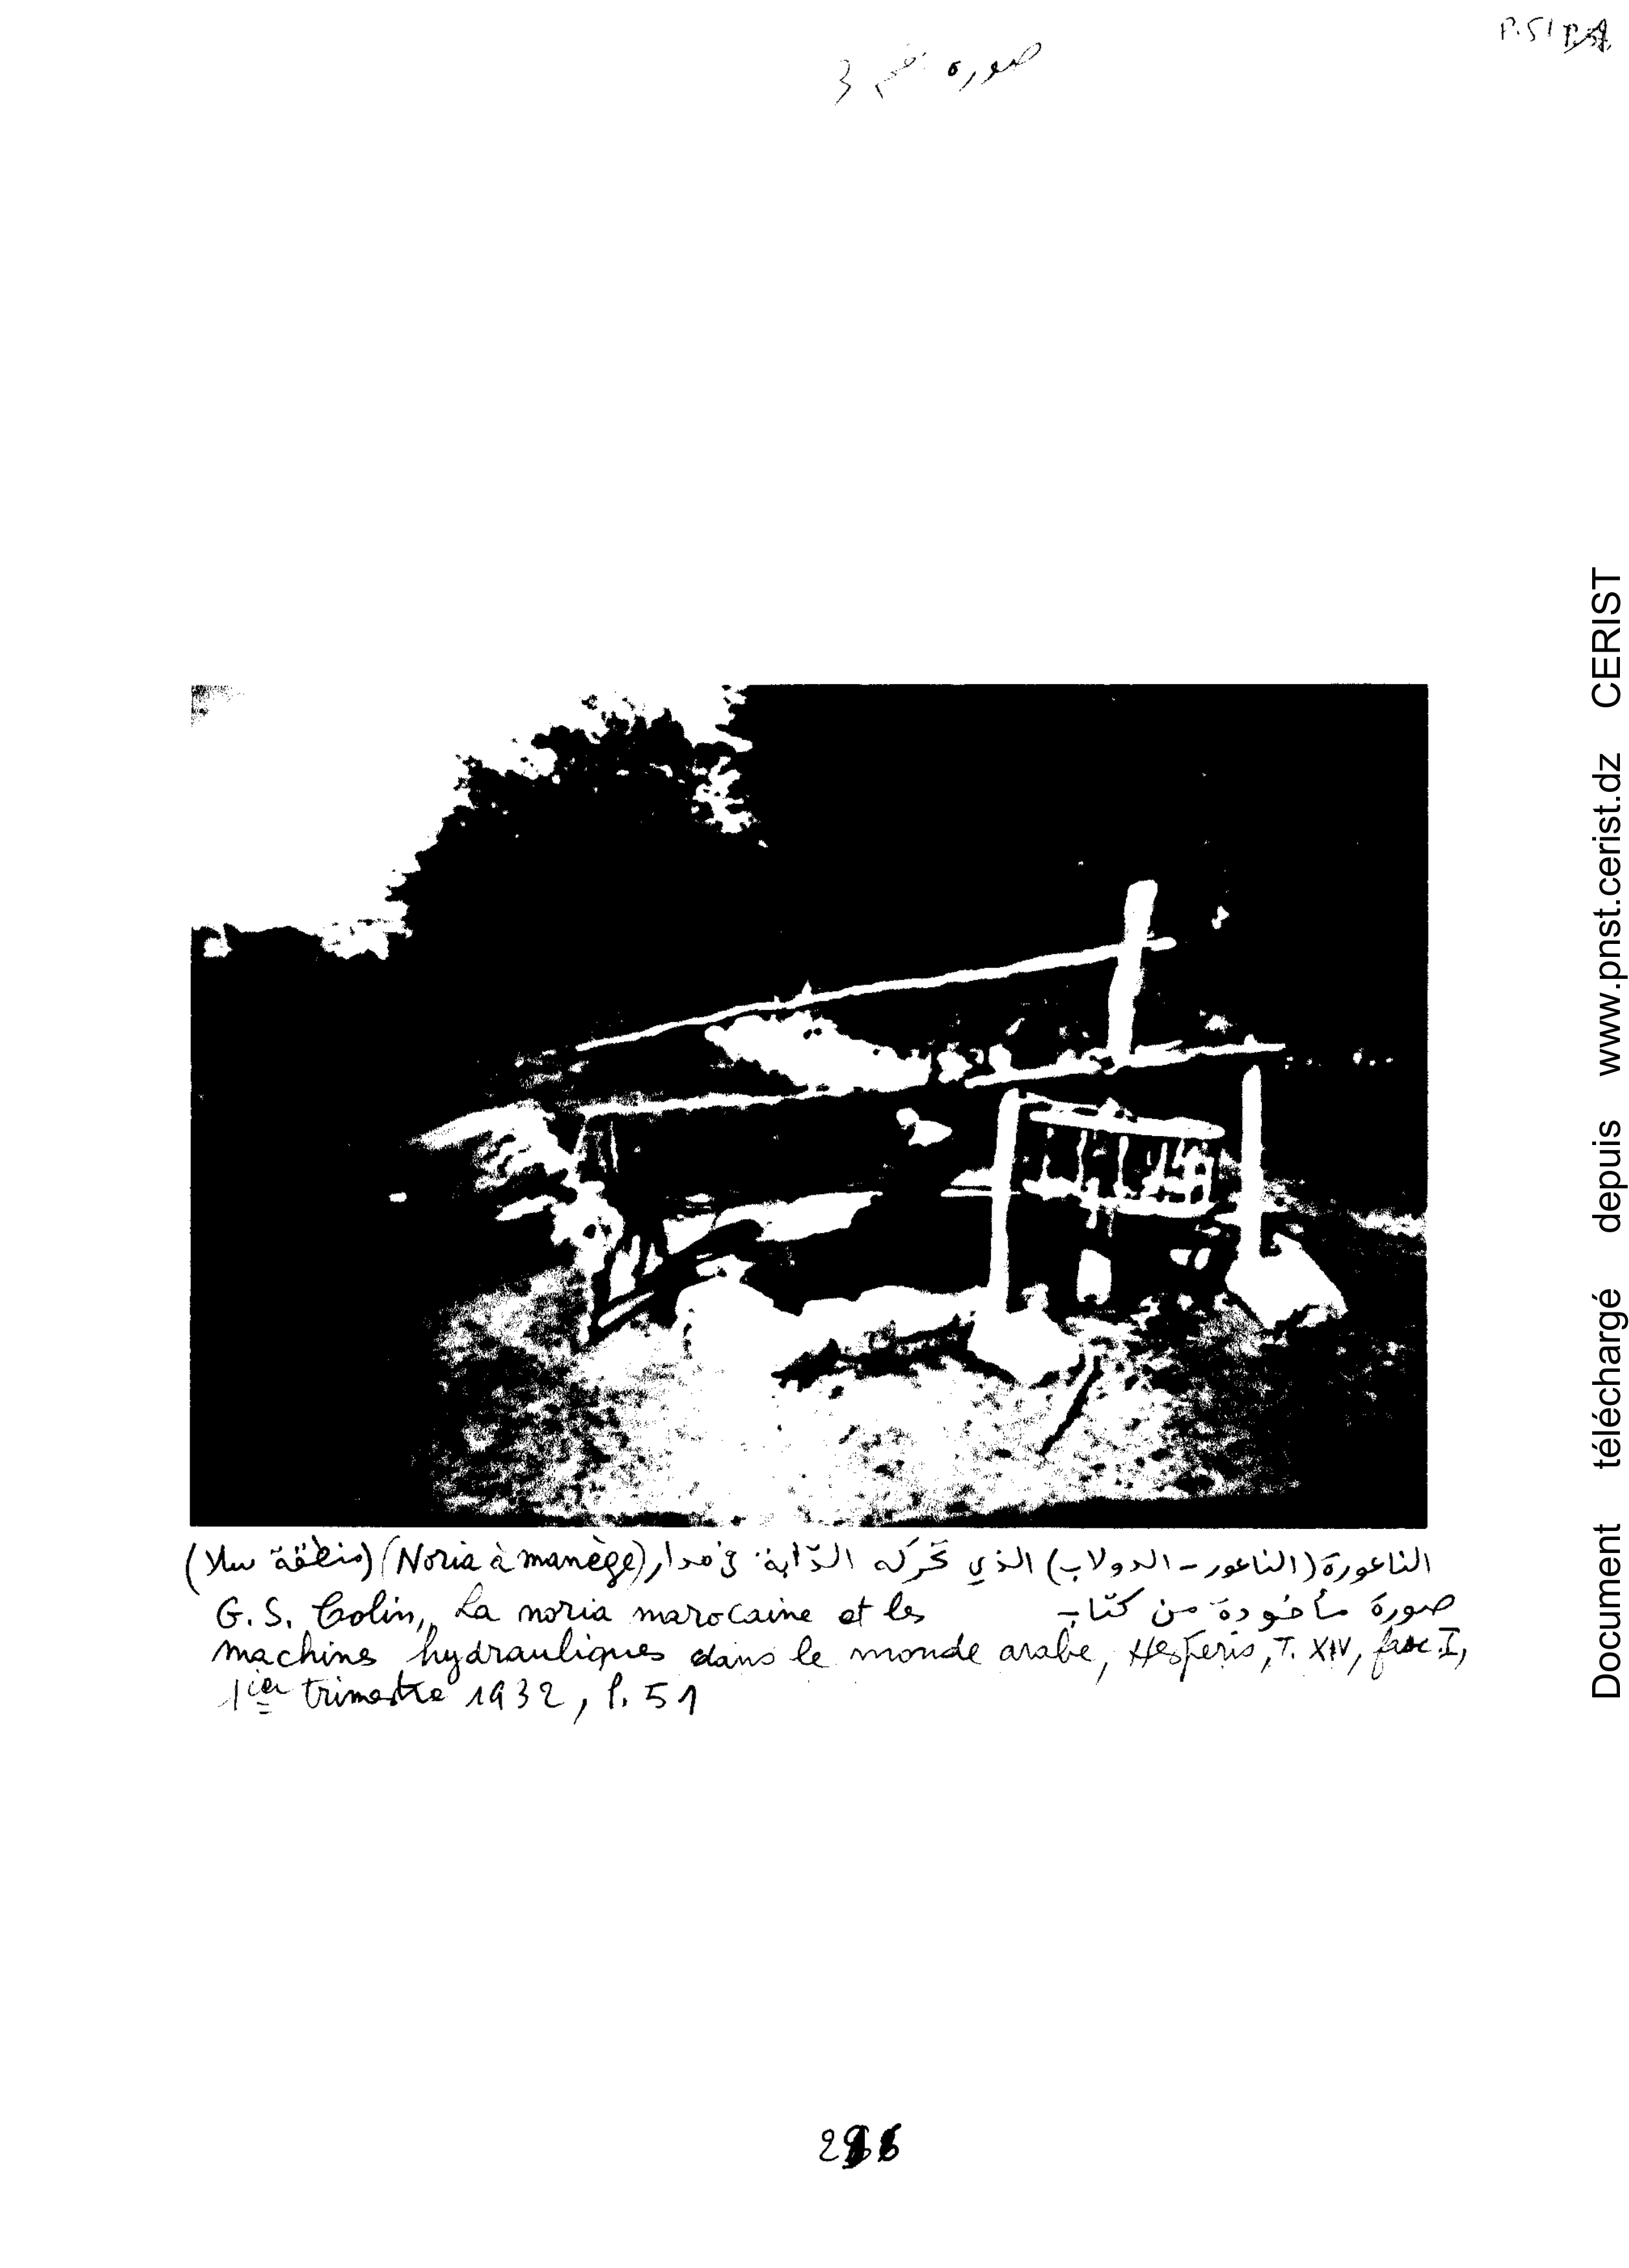 P.51
صورة رقم 3
الناعورة (الناعور - الدولاب) الذي تحركه الدّابة في مدار (Noria à manège) (منطقة سلا)
صورة مأخوذة من كتاب G. S. Colin, La noria marocaine et les
machines hydrauliques dans le monde arabe, Hesperis, T. XIV, fasc I,
1ier trimestre 1932, P. 51
Document téléchargé depuis www.pnst.cerist.dz CERIST